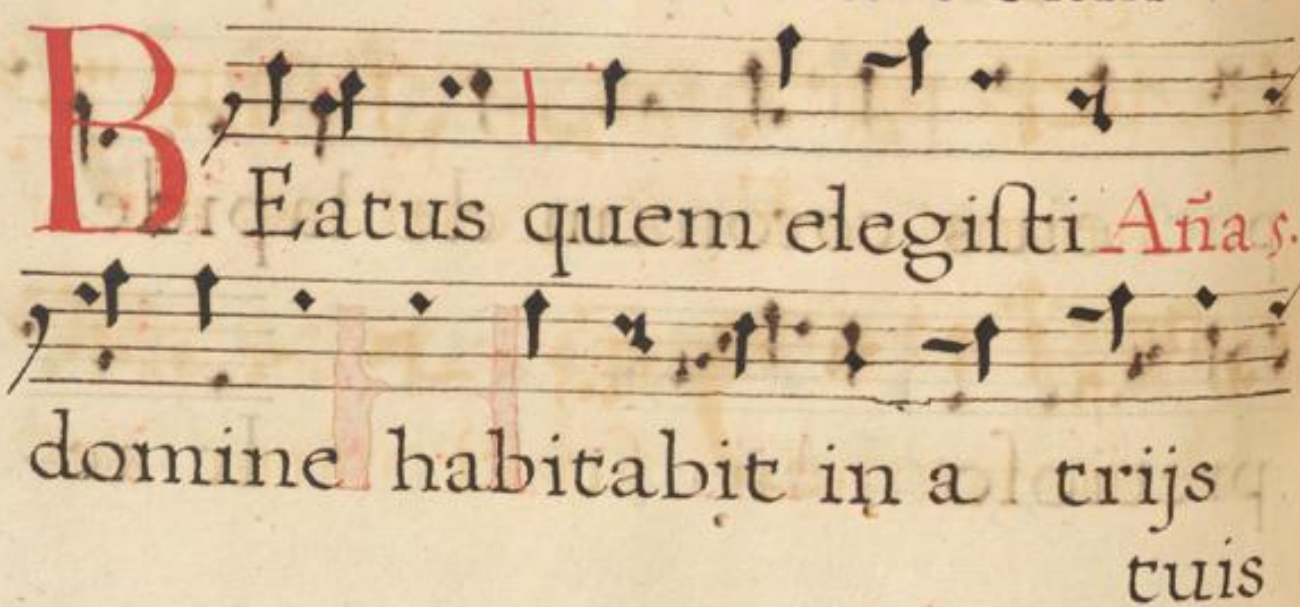 BEatus quem elegiſti Aña s.
domine habitabit in a trijs
tuis